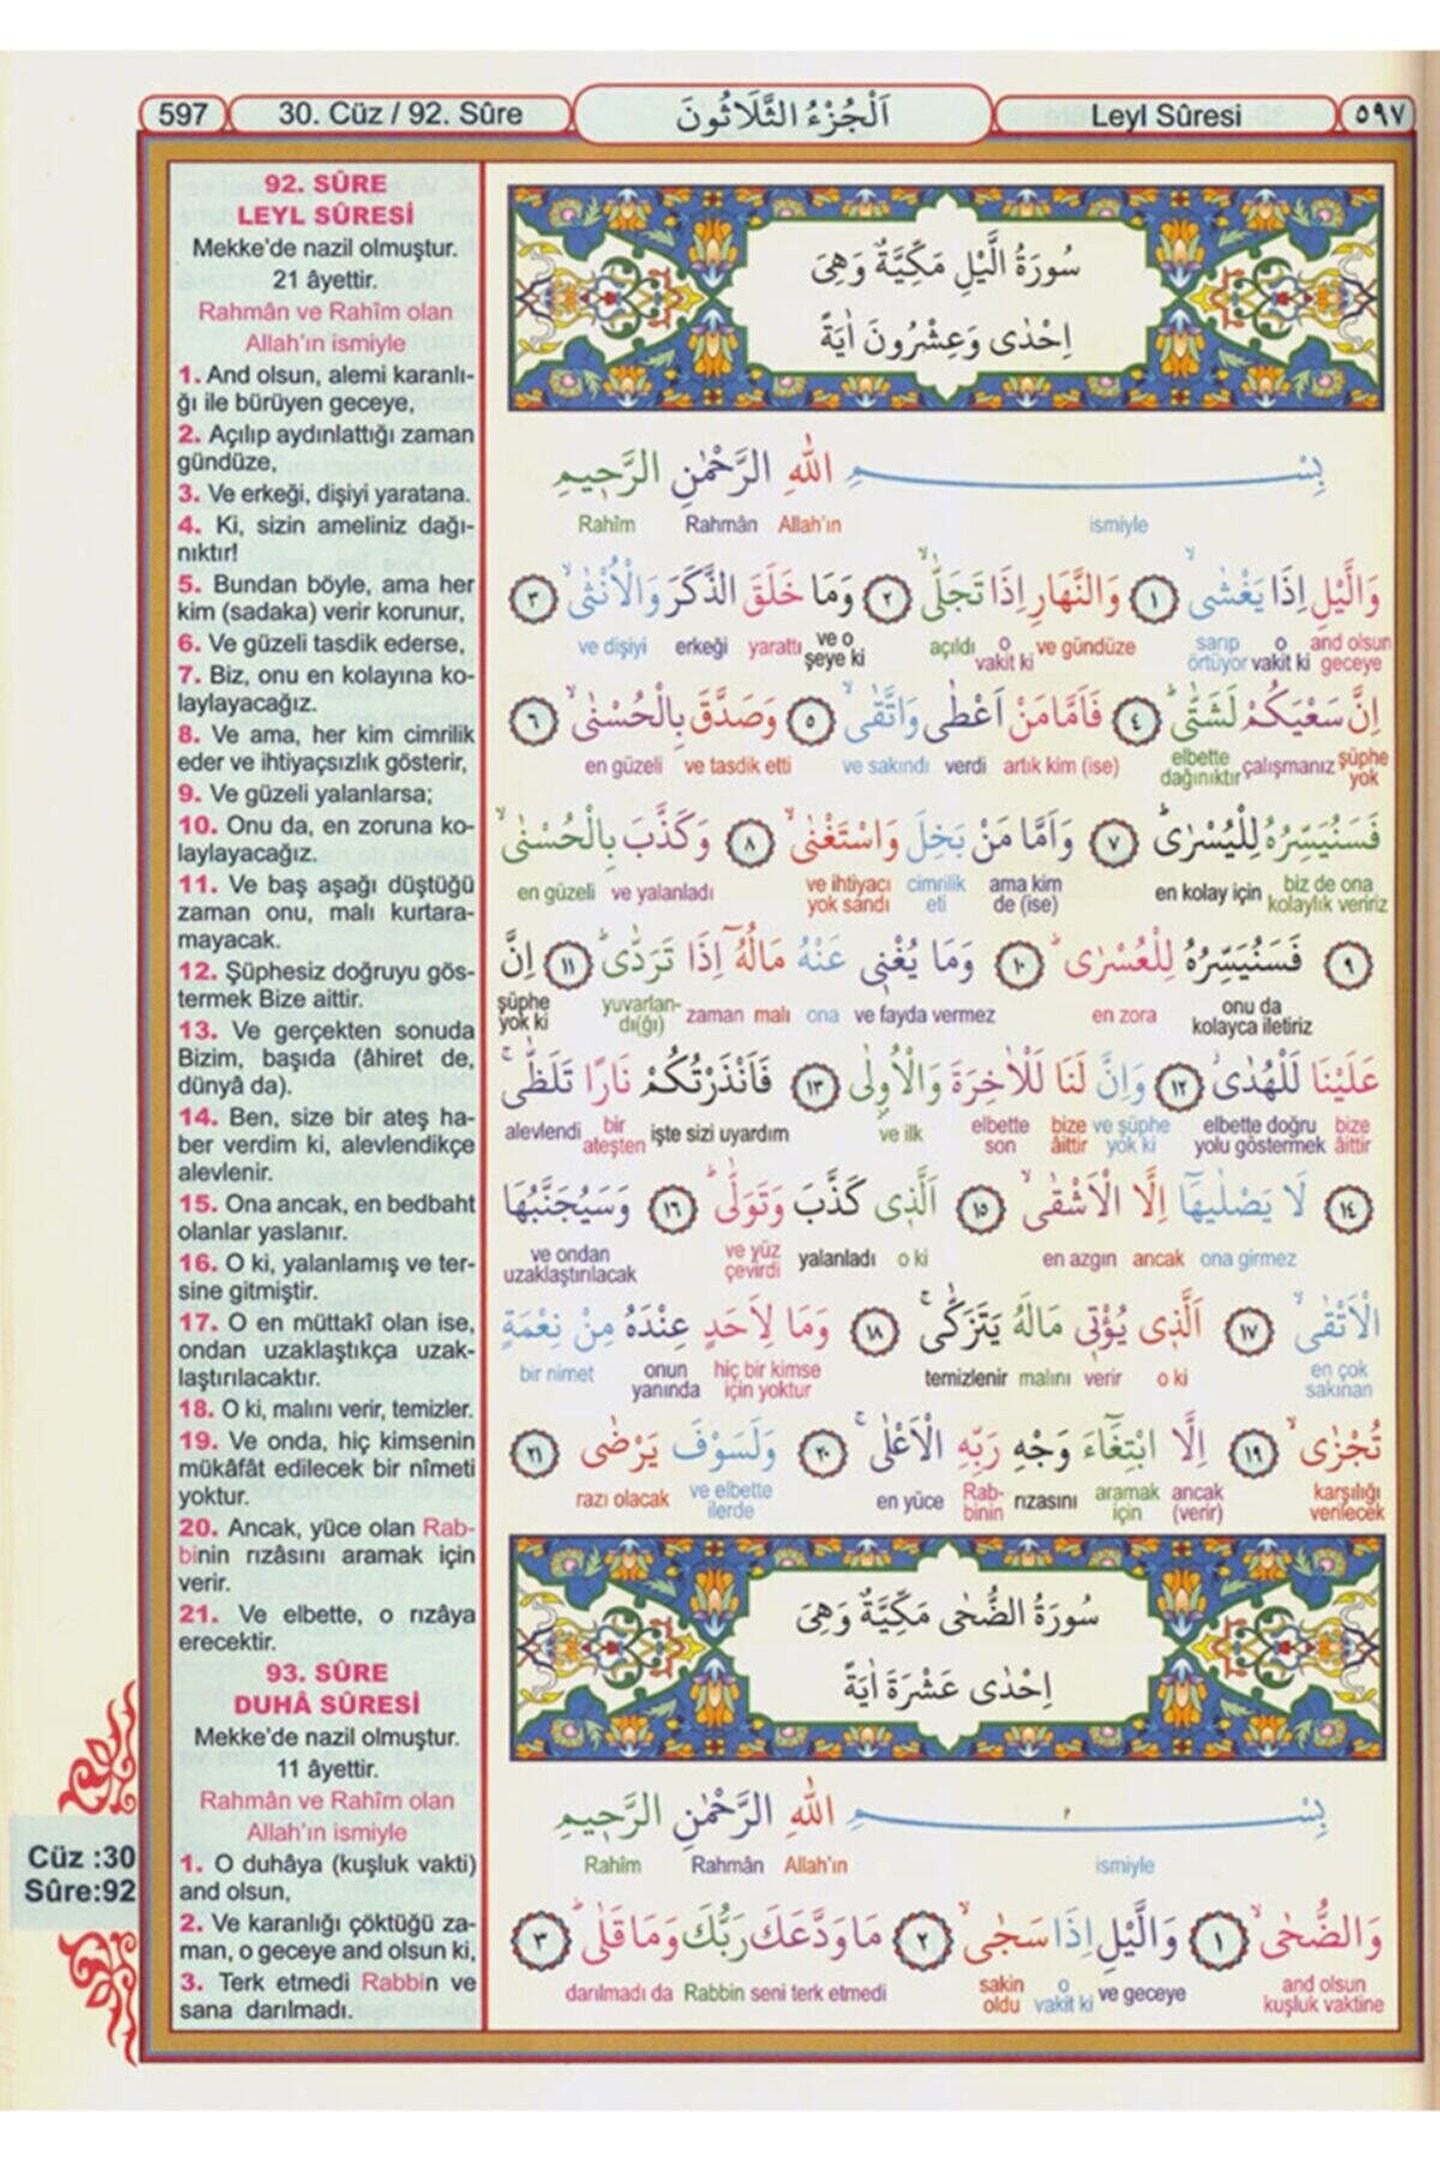 597
30. Cüz / 92. Sûre
اَلْجُزْءُ الثَّلَاثُونَ
Leyl Sûresi
٥٩٧
92. SÛRE
LEYL SÛRESİ
Mekke'de nazil olmuştur.
21 âyettir.
Rahmân ve Rahîm olan
Allah'ın ismiyle
1. And olsun, alemi karanlı-
ğı ile bürüyen geceye,
2. Açılıp aydınlattığı zaman
gündüze,
3. Ve erkeği, dişiyi yaratana.
4. Ki, sizin ameliniz dağı-
nıktır!
5. Bundan böyle, ama her
kim (sadaka) verir korunur,
6. Ve güzeli tasdik ederse,
7. Biz, onu en kolayına ko-
laylayacağız.
8. Ve ama, her kim cimrilik
eder ve ihtiyaçsızlık gösterir,
9. Ve güzeli yalanlarsa;
10. Onu da, en zoruna ko-
laylayacağız.
11. Ve baş aşağı düştüğü
zaman onu, malı kurtara-
mayacak.
12. Şüphesiz doğruyu gös-
termek Bize aittir.
13. Ve gerçekten sonuda
Bizim, başıda (âhiret de,
dünyâ da).
14. Ben, size bir ateş ha-
ber verdim ki, alevlendikçe
alevlenir.
15. Ona ancak, en bedbaht
olanlar yaslanır.
16. O ki, yalanlamış ve ter-
sine gitmiştir.
17. O en müttakî olan ise,
ondan uzaklaştıkça uzak-
laştırılacaktır.
18. O ki, malını verir, temizler.
19. Ve onda, hiç kimsenin
mükâfât edilecek bir nîmeti
yoktur.
20. Ancak, yüce olan Rab-
binin rızâsını aramak için
verir.
21. Ve elbette, o rızâya
erecektir.
93. SÛRE
DUHÂ SÛRESİ
Mekke'de nazil olmuştur.
11 âyettir.
Rahmân ve Rahîm olan
Allah'ın ismiyle
1. O duhâya (kuşluk vakti)
and olsun,
2. Ve karanlığı çöktüğü za-
man, o geceye and olsun ki,
3. Terk etmedi Rabbin ve
sana darılmadı.
Cüz :30
Sûre:92
سُورَةُ الَّيْلِ مَكِّيَّةٌ وَهِىَ
اِحْدٰى وَعِشْرُونَ اٰيَةً
بِسْمِ اللّٰهِ الرَّحْمٰنِ الرَّحِيمِ
Rahîm Rahmân Allah'ın ismiyle
وَالَّيْلِ اِذَا يَغْشٰىۙ ١ وَالنَّهَارِ اِذَا تَجَلّٰىۙ ٢ وَمَا خَلَقَ الذَّكَرَ وَالْاُنْثٰىۙ ٣
ve dişiyi erkeği yarattı ve o şeye ki açıldı o vakit ki ve gündüze sarıp örtüyor o vakit ki and olsun geceye
اِنَّ سَعْيَكُمْ لَشَتّٰىۜ ٤ فَاَمَّا مَنْ اَعْطٰى وَاتَّقٰىۙ ٥ وَصَدَّقَ بِالْحُسْنٰىۙ ٦
en güzeli ve tasdik etti ve sakındı verdi artık kim (ise) elbette dağınıktır çalışmanız şüphe yok
فَسَنُيَسِّرُهُ لِلْيُسْرٰىۜ ٧ وَاَمَّا مَنْ بَخِلَ وَاسْتَغْنٰىۙ ٨ وَكَذَّبَ بِالْحُسْنٰىۙ
en güzeli ve yalanladı ve ihtiyacı yok sandı cimrilik eti ama kim de (ise) en kolay için biz de ona kolaylık veririz
٩ فَسَنُيَسِّرُهُ لِلْعُسْرٰىۜ ١٠ وَمَا يُغْنِى عَنْهُ مَالُهُٓ اِذَا تَرَدّٰىۜ ١١ اِنَّ
şüphe yok ki yuvarlan- dı(ğı) zaman malı ona ve fayda vermez en zora onu da kolayca iletiriz
عَلَيْنَا لَلْهُدٰىۘ ١٢ وَاِنَّ لَنَا لَلْاٰخِرَةَ وَالْاُولٰى ١٣ فَاَنْذَرْتُكُمْ نَارًا تَلَظّٰىۚ
alevlendi bir ateşten işte sizi uyardım ve ilk elbette son bize âittir ve şüphe yok ki elbette doğru yolu göstermek bize âittir
١٤ لَا يَصْلٰيهَٓا اِلَّا الْاَشْقٰىۙ ١٥ اَلَّذِى كَذَّبَ وَتَوَلّٰىۜ ١٦ وَسَيُجَنَّبُهَا
ve ondan uzaklaştırılacak ve yüz çevirdi yalanladı o ki en azgın ancak ona girmez
الْاَتْقٰىۙ ١٧ اَلَّذِى يُؤْتِى مَالَهُ يَتَزَكّٰىۚ ١٨ وَمَا لِاَحَدٍ عِنْدَهُ مِنْ نِعْمَةٍ
bir nimet onun yanında hiç bir kimse için yoktur temizlenir malını verir o ki en çok sakınan
تُجْزٰىۙ ١٩ اِلَّا ابْتِغَٓاءَ وَجْهِ رَبِّهِ الْاَعْلٰىۚ ٢٠ وَلَسَوْفَ يَرْضٰى ٢١
razı olacak ve elbette ilerde en yüce Rab- binin rızasını aramak için ancak (verir) karşılığı verilecek
سُورَةُ الضُّحٰى مَكِّيَّةٌ وَهِىَ
اِحْدٰى عَشْرَةَ اٰيَةً
بِسْمِ اللّٰهِ الرَّحْمٰنِ الرَّحِيمِ
Rahîm Rahmân Allah'ın ismiyle
وَالضُّحٰىۙ ١ وَالَّيْلِ اِذَا سَجٰىۙ ٢ مَا وَدَّعَكَ رَبُّكَ وَمَا قَلٰىۜ ٣
darılmadı da Rabbin seni terk etmedi sakin oldu o vakit ki ve geceye and olsun kuşluk vaktine